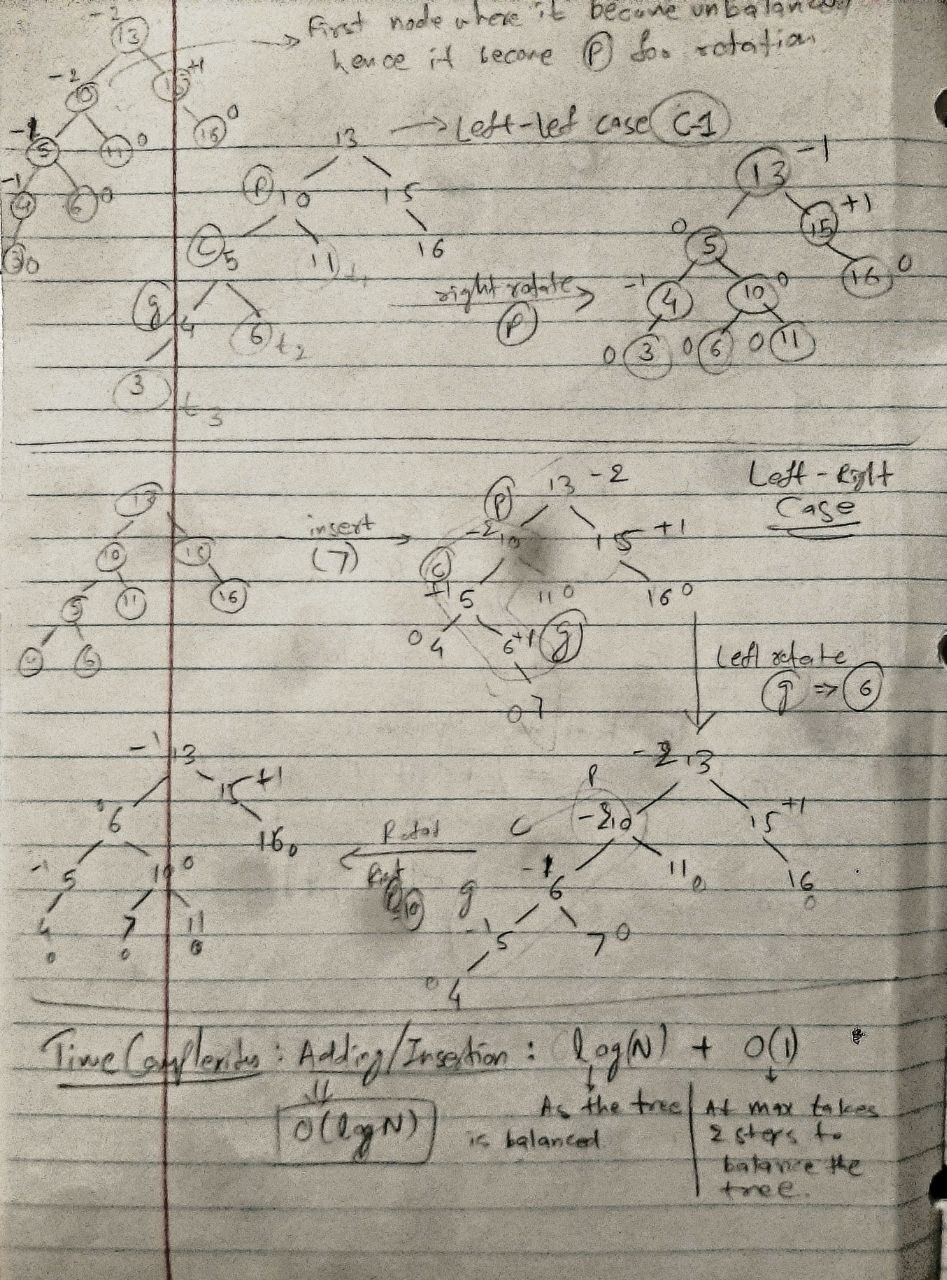 First node where it become unbalanced
hence it become P for rotation
-2
13
-2 10 15 +1
-1 5 11 0 16 0
-1 4 6 0
3 0
13 → Left-lef case C-1
P 10 15
C 5 11 t1 16
g 4 6 t2
3 t3
right rotate
P
13 -1
0 5 15 +1
-1 4 10 0 16 0
0 3 0 6 0 11
Left-Right
Case
13
10 15
5 11 16
4 6
insert
(7)
P 13 -2
-2 10 15 +1
C +1 5 11 0 16 0
0 4 6 +1 g
0 7
Left rotate
g => 6
-2 13
P
C -2 10 15 +1
g -1 6 11 0 16 0
-1 5 7 0
0 4
10
-1 13
0 6 15 +1
-1 5 10 0 16 0
4 0 7 0 11 0
Time Complexity : Adding/Insertion : log(N) + O(1)
O(log N)
As the tree
is balanced
At max takes
2 steps to
balance the
tree.